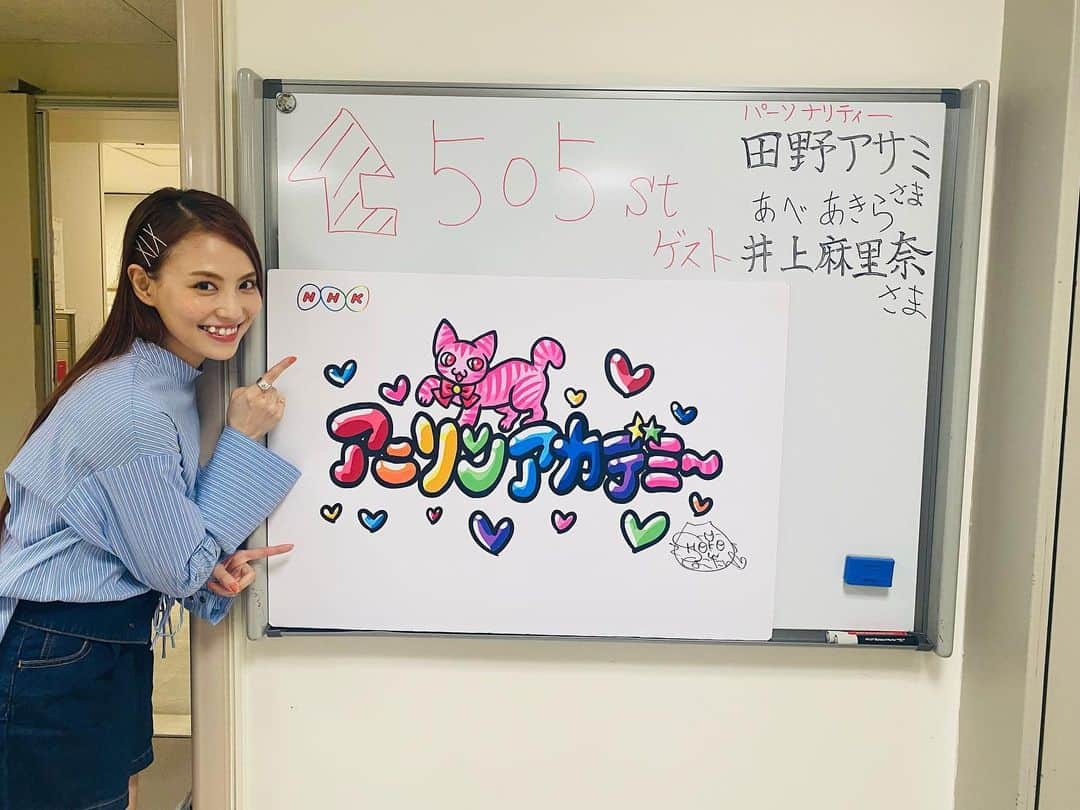 505st
パーソナリティー
田野アサミ
さま
あべ あきら
ゲスト 井上麻里奈
さま
NHK
アニソンアカデミ〜
YOKO